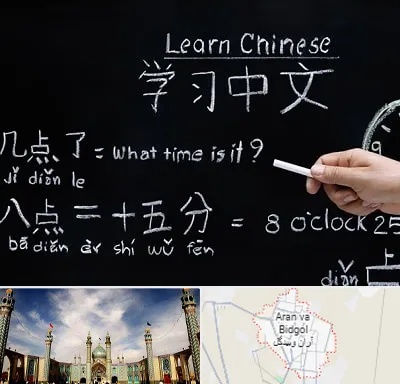 Learn Chinese
学习中文
几点了 = What time is it?
jǐ diǎn le
八点二十五分 = 8 o'clock 25
bā diǎn èr shí wǔ fēn
9
diǎn 上
Aran va
Bidgol
آران و بیدگل